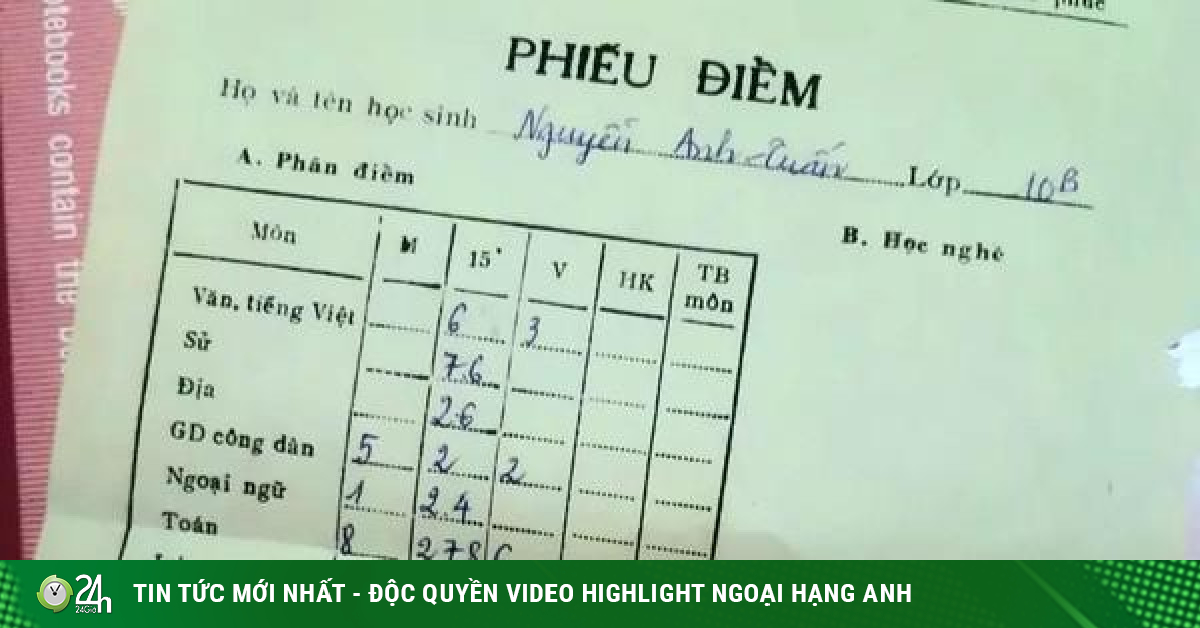 phúc
otebooks contain the
PHIẾU ĐIỂM
Họ và tên học sinh Nguyễn Anh Tuấn Lớp 10B
A. Phân điểm
B. Học nghề
Môn M 15' V HK TB môn
Văn, tiếng Việt 6 3
Sử 7.6
Địa 2.6
GD công dân 5 2 2
Ngoại ngữ 1 2.4
Toán 8 278
24h
24Giờ
TIN TỨC MỚI NHẤT - ĐỘC QUYỀN VIDEO HIGHLIGHT NGOẠI HẠNG ANH